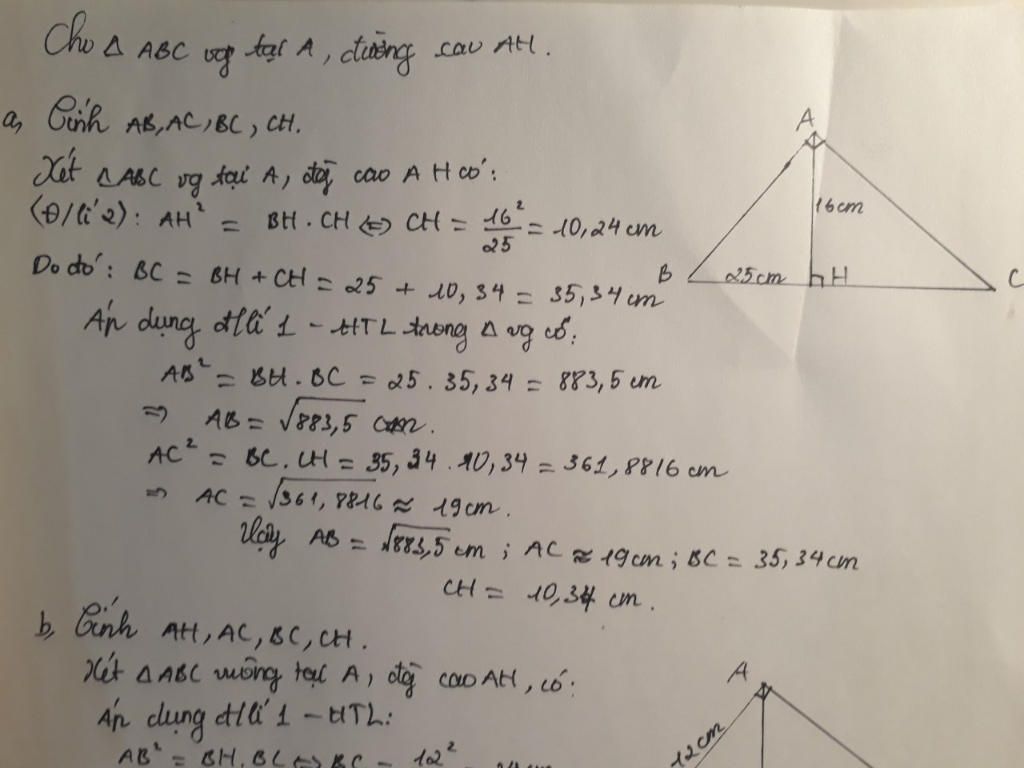 Cho Δ ABC vg tại A, đường cao AH.
a, Tính AB, AC, BC, CH.
Xét ΔABC vg tại A, đg cao AH có:
(Đ/lí 2): AH² = BH.CH <=> CH = 16²/25 = 10,24 cm
Do đó: BC = BH + CH = 25 + 10,34 = 35,34 cm
Áp dụng đ/lí 1 - HTL trong Δ vg có:
AB² = BH.BC = 25.35,34 = 883,5 cm
=> AB = √883,5 cm.
AC² = BC.CH = 35,34.10,34 = 361,8816 cm
=> AC = √361,8816 ≈ 19cm.
Vậy AB = √883,5 cm; AC ≈ 19cm; BC = 35,34cm
CH = 10,34 cm.
A
16cm
B
25cm
H
C
b, Tính AH, AC, BC, CH.
Xét ΔABC vuông tại A, đg cao AH, có:
Áp dụng đ/lí 1 - HTL:
AB² = BH.BC <=> BC = 12²
A
12cm